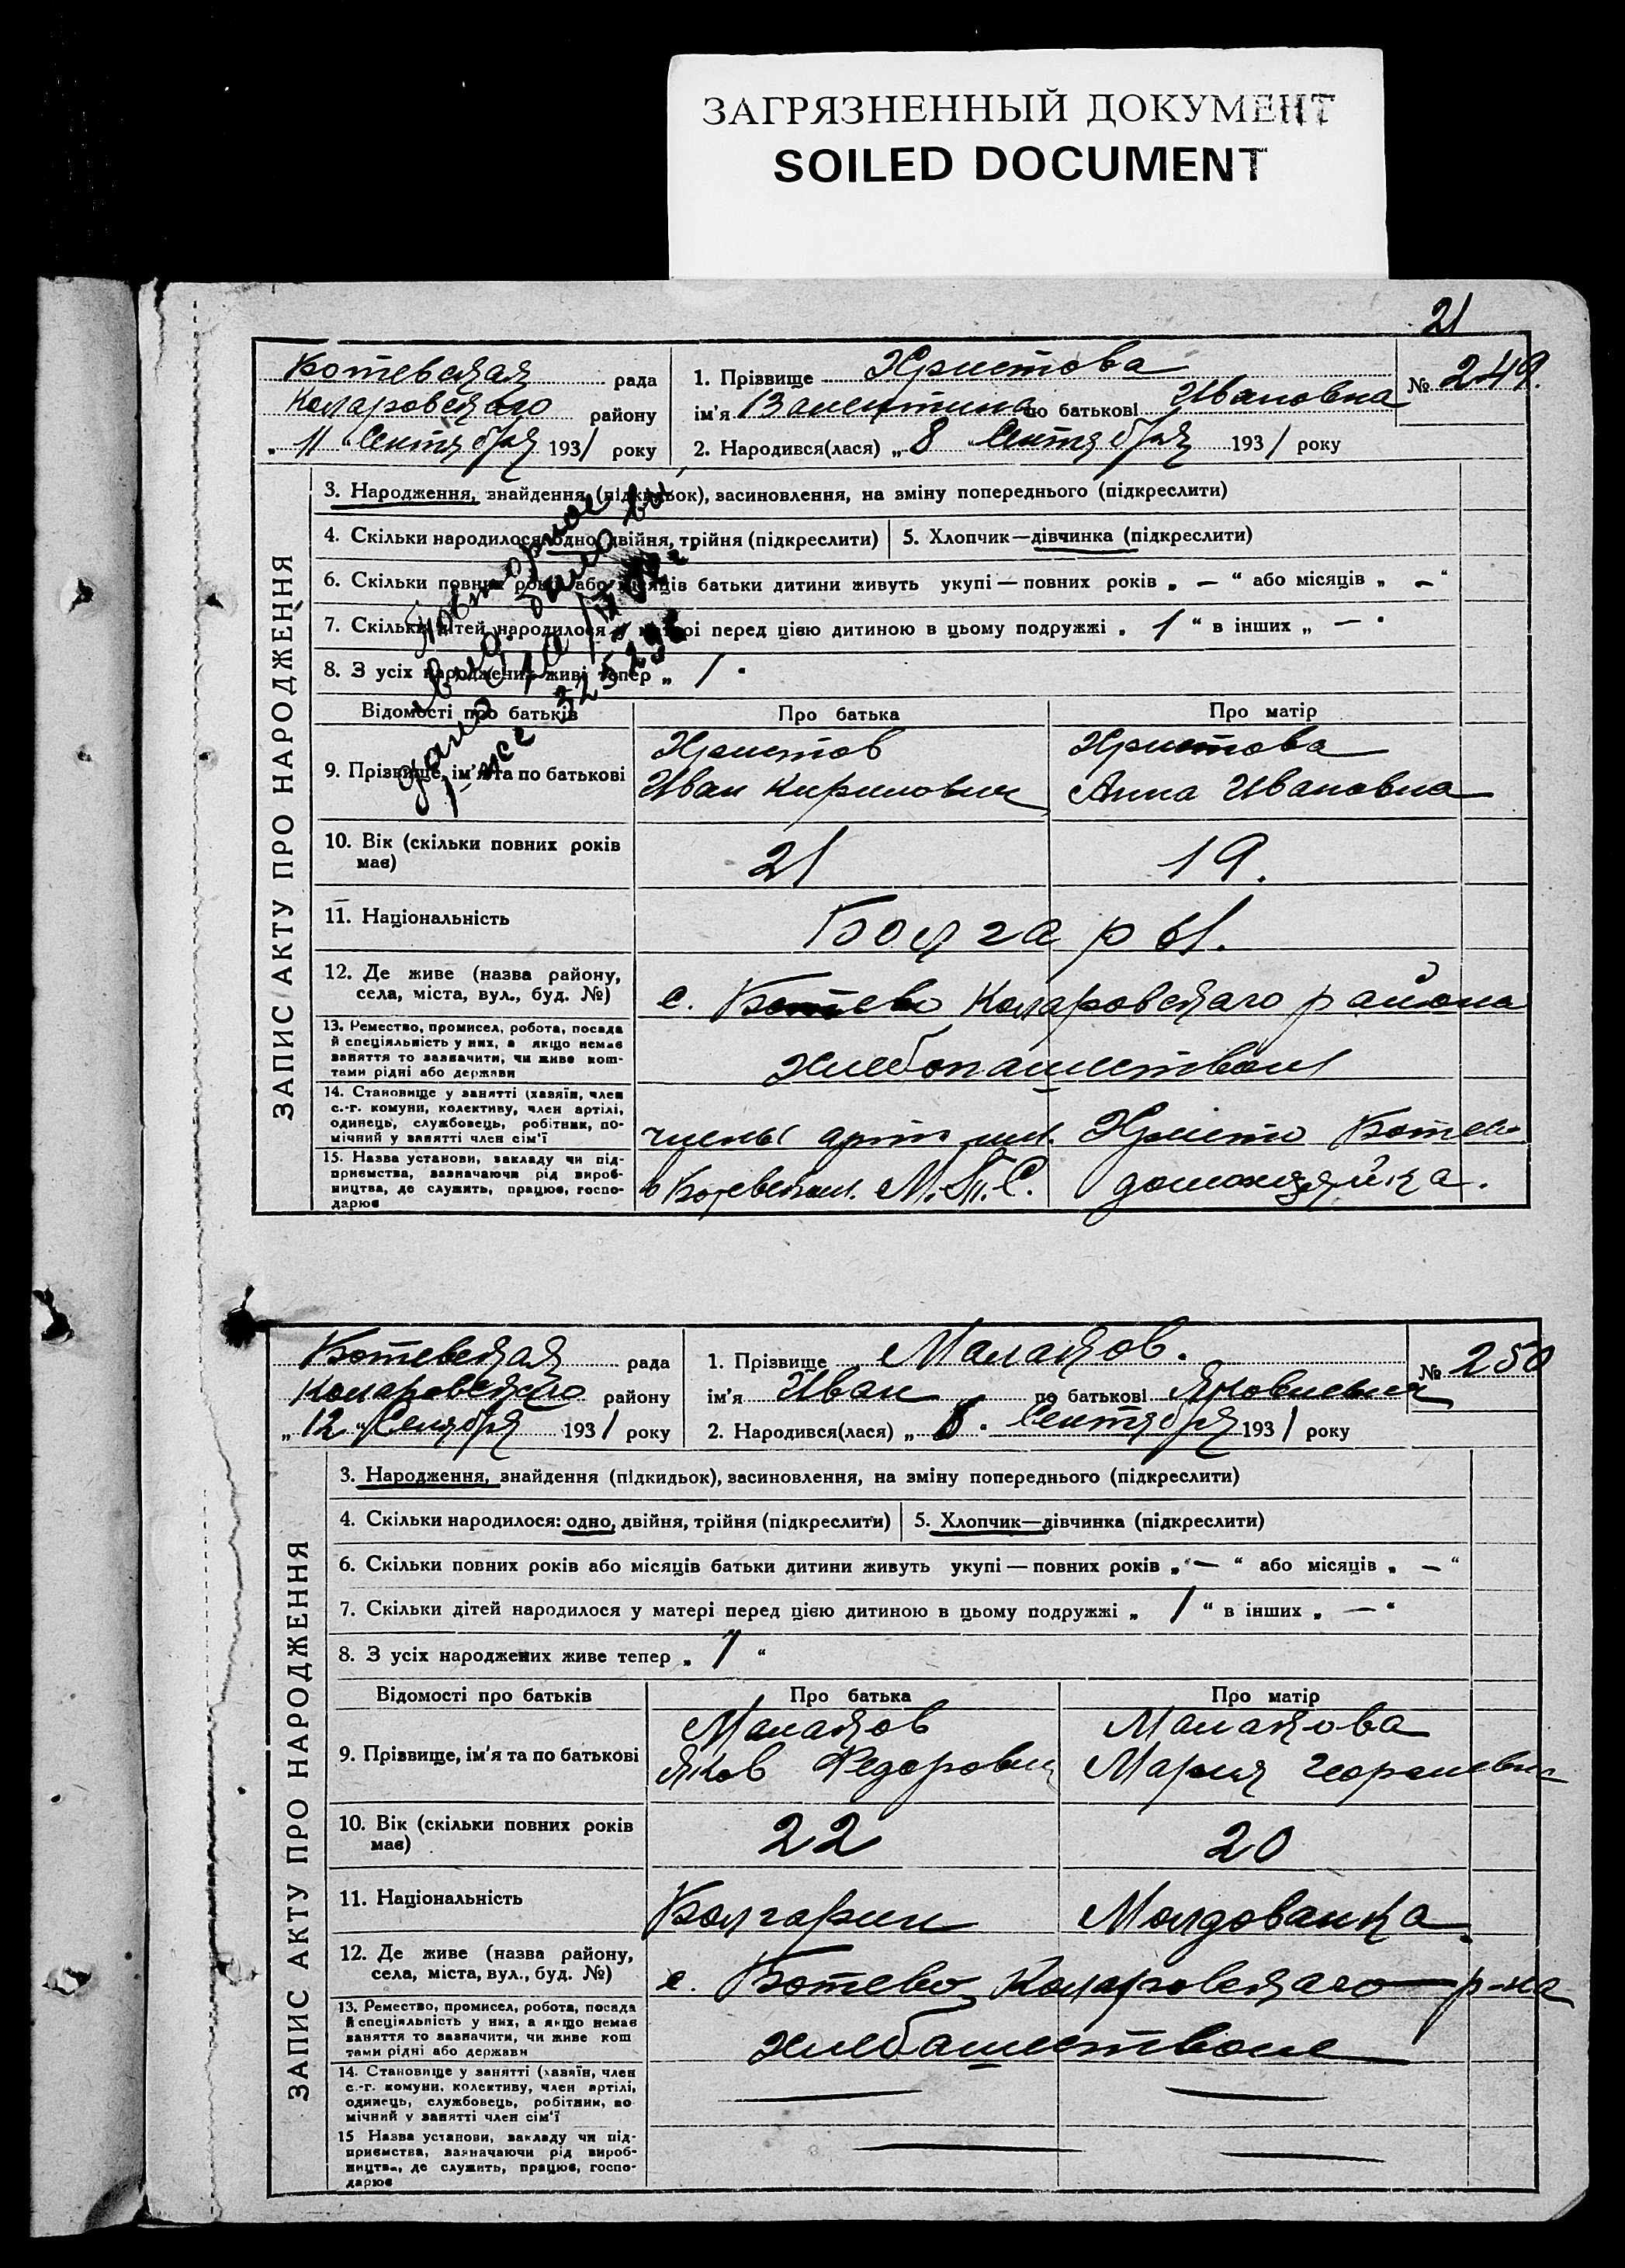 ЗАГРЯЗНЕННЫЙ ДОКУМЕНТ
SOILED DOCUMENT
21
Ботевская рада
Коларовского району
„ 11 “ Сентября 1931 року
1. Прізвище Христова
ім'я Валентина по батькові Ивановна
2. Народився(лася) „ 8 “ Сентября 1931 року
№ 249.
ЗАПИС АКТУ ПРО НАРОДЖЕННЯ
3. Народження, знайдення (підкидьок), засиновлення, на зміну попереднього (підкреслити)
4. Скільки народилося: одно, двійня, трійня (підкреслити) 5. Хлопчик—дівчинка (підкреслити)
6. Скільки повних років або місяців батьки дитини живуть укупі — повних років „ — “ або місяців „ — “
7. Скільки дітей народилося у матері перед цією дитиною в цьому подружжі „ 1 “ в інших „ — “
8. З усіх народжених живе тепер „ 1 “
Повторное
Відомості про батьків Про батька Про матір
9. Прізвище, ім'я та по батькові
Христов
Иван Кирилович
Христова
Анна Ивановна
10. Вік (скільки повних років має) 21 19.
11. Національність Болгары.
12. Де живе (назва району, села, міста, вул., буд. №)
с. Ботево Коларовского района
13. Ремество, промисел, робота, посада й спеціяльність у них, а якщо немає заняття то зазначити, чи живе коштами рідні або держави
хлебопашеством
14. Становище у занятті (хазяїн, член с.-г. комуни, колективу, член артілі, одинець, службовець, робітник, помічний у занятті член сім'ї
члены арт. им. Христо Ботева
15. Назва установи, закладу чи підприємства, зазначаючи рід виробництва, де служить, працює, господарює
в Ботевском. М.Т.С. домохазяйка.
Ботевская рада
Коларовского району
„ 12 “ Сентября 1931 року
1. Прізвище Малаков.
ім'я Иван по батькові Яковлевич
2. Народився(лася) „ “ Сентября 1931 року
№ 250
ЗАПИС АКТУ ПРО НАРОДЖЕННЯ
3. Народження, знайдення (підкидьок), засиновлення, на зміну попереднього (підкреслити)
4. Скільки народилося: одно, двійня, трійня (підкреслити) 5. Хлопчик—дівчинка (підкреслити)
6. Скільки повних років або місяців батьки дитини живуть укупі — повних років „ — “ або місяців „ — “
7. Скільки дітей народилося у матері перед цією дитиною в цьому подружжі „ 1 “ в інших „ — “
8. З усіх народжених живе тепер „ 1 “
Відомості про батьків Про батька Про матір
9. Прізвище, ім'я та по батькові
Малаков
Яков Федорович
Малакова
Мария Георгиевна
10. Вік (скільки повних років має) 22 20
11. Національність Болгарин Молдованка.
12. Де живе (назва району, села, міста, вул., буд. №)
с. Ботево Коларовского р-на
13. Ремество, промисел, робота, посада й спеціяльність у них, а якщо немає заняття то зазначити, чи живе коштами рідні або держави
хлебашеством
14. Становище у занятті (хазяїн, член с.-г. комуни, колективу, член артілі, одинець, службовець, робітник, помічний у занятті член сім'ї
— —
15 Назва установи, закладу чи підприємства, зазначаючи рід виробництва, де служить, працює, господарює
— —